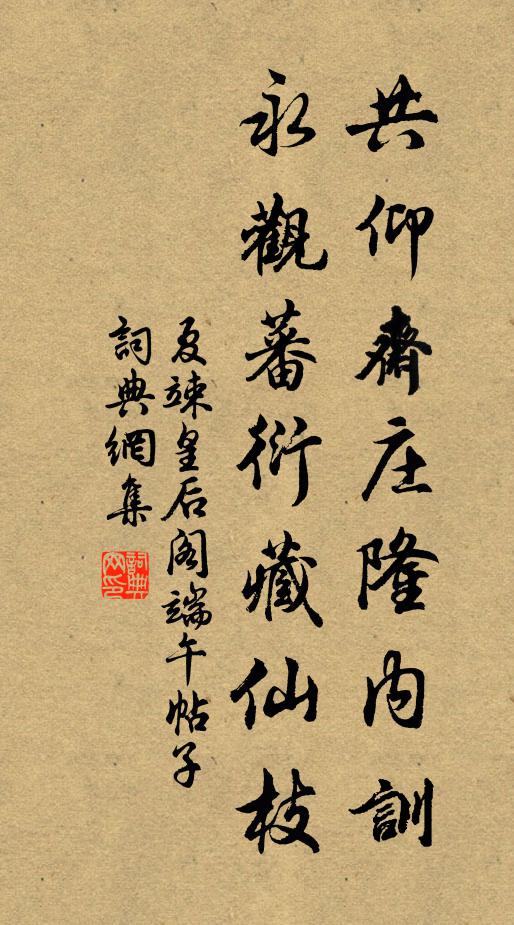 共仰齋庄隆內訓
永觀蕃衍藏仙枝
夏竦皇后阁端午帖子
詞典網集
詞典網印